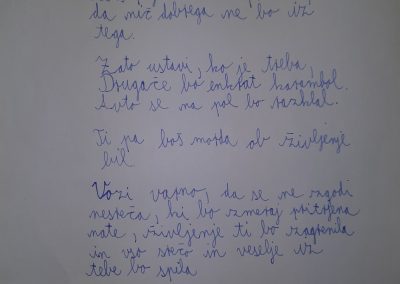 da nič dobrega ne bo iz
tega.
Zato ustavi, ko je treba,
Drugače bo enkrat karambol.
Avto se na pol bo razklal.
Ti pa boš morda ob življenje
bil
Vozi varno, da se ne zgodi
nesreča, ki bo zmeraj pritrjena
nate, življenje ti bo zagrenila
in vso srečo in veselje iz
tebe bo spila